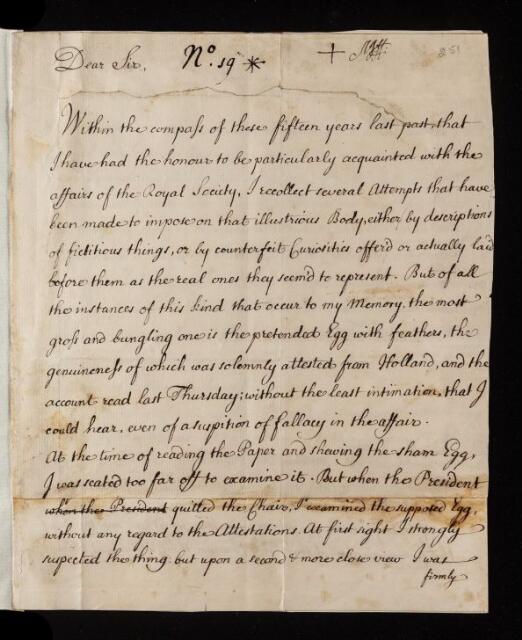 Dear Sir, Nº. 19 * + 251
Within the compaſs of these fifteen years last past, that
I have had the honour to be particularly acquainted with the
affairs of the Royal Society, I recollect several Attempts that have
been made to impose on that illustrious Body, either by descriptions
of fictitious things, or by counterfeit Curiosities offer'd or actually laid
before them as the real ones they seem'd to represent. But of all
the instances of this kind that occur to my Memory, the most
groſs and bungling one is the pretended Egg with feathers, the
genuineneſs of which was solemnly attested from Holland, and the
account read last Thursday; without the least intimation, that I
could hear, even of a suspition of fallacy in the affair.
At the time of reading the Paper and shewing the sham Egg,
I was seated too far off to examine it. But when the President
when the President quitted the Chair, I examined the supposed Egg,
without any regard to the Attestations. At first sight I strongly
suspected the thing: but upon a second & more close view I was
firmly